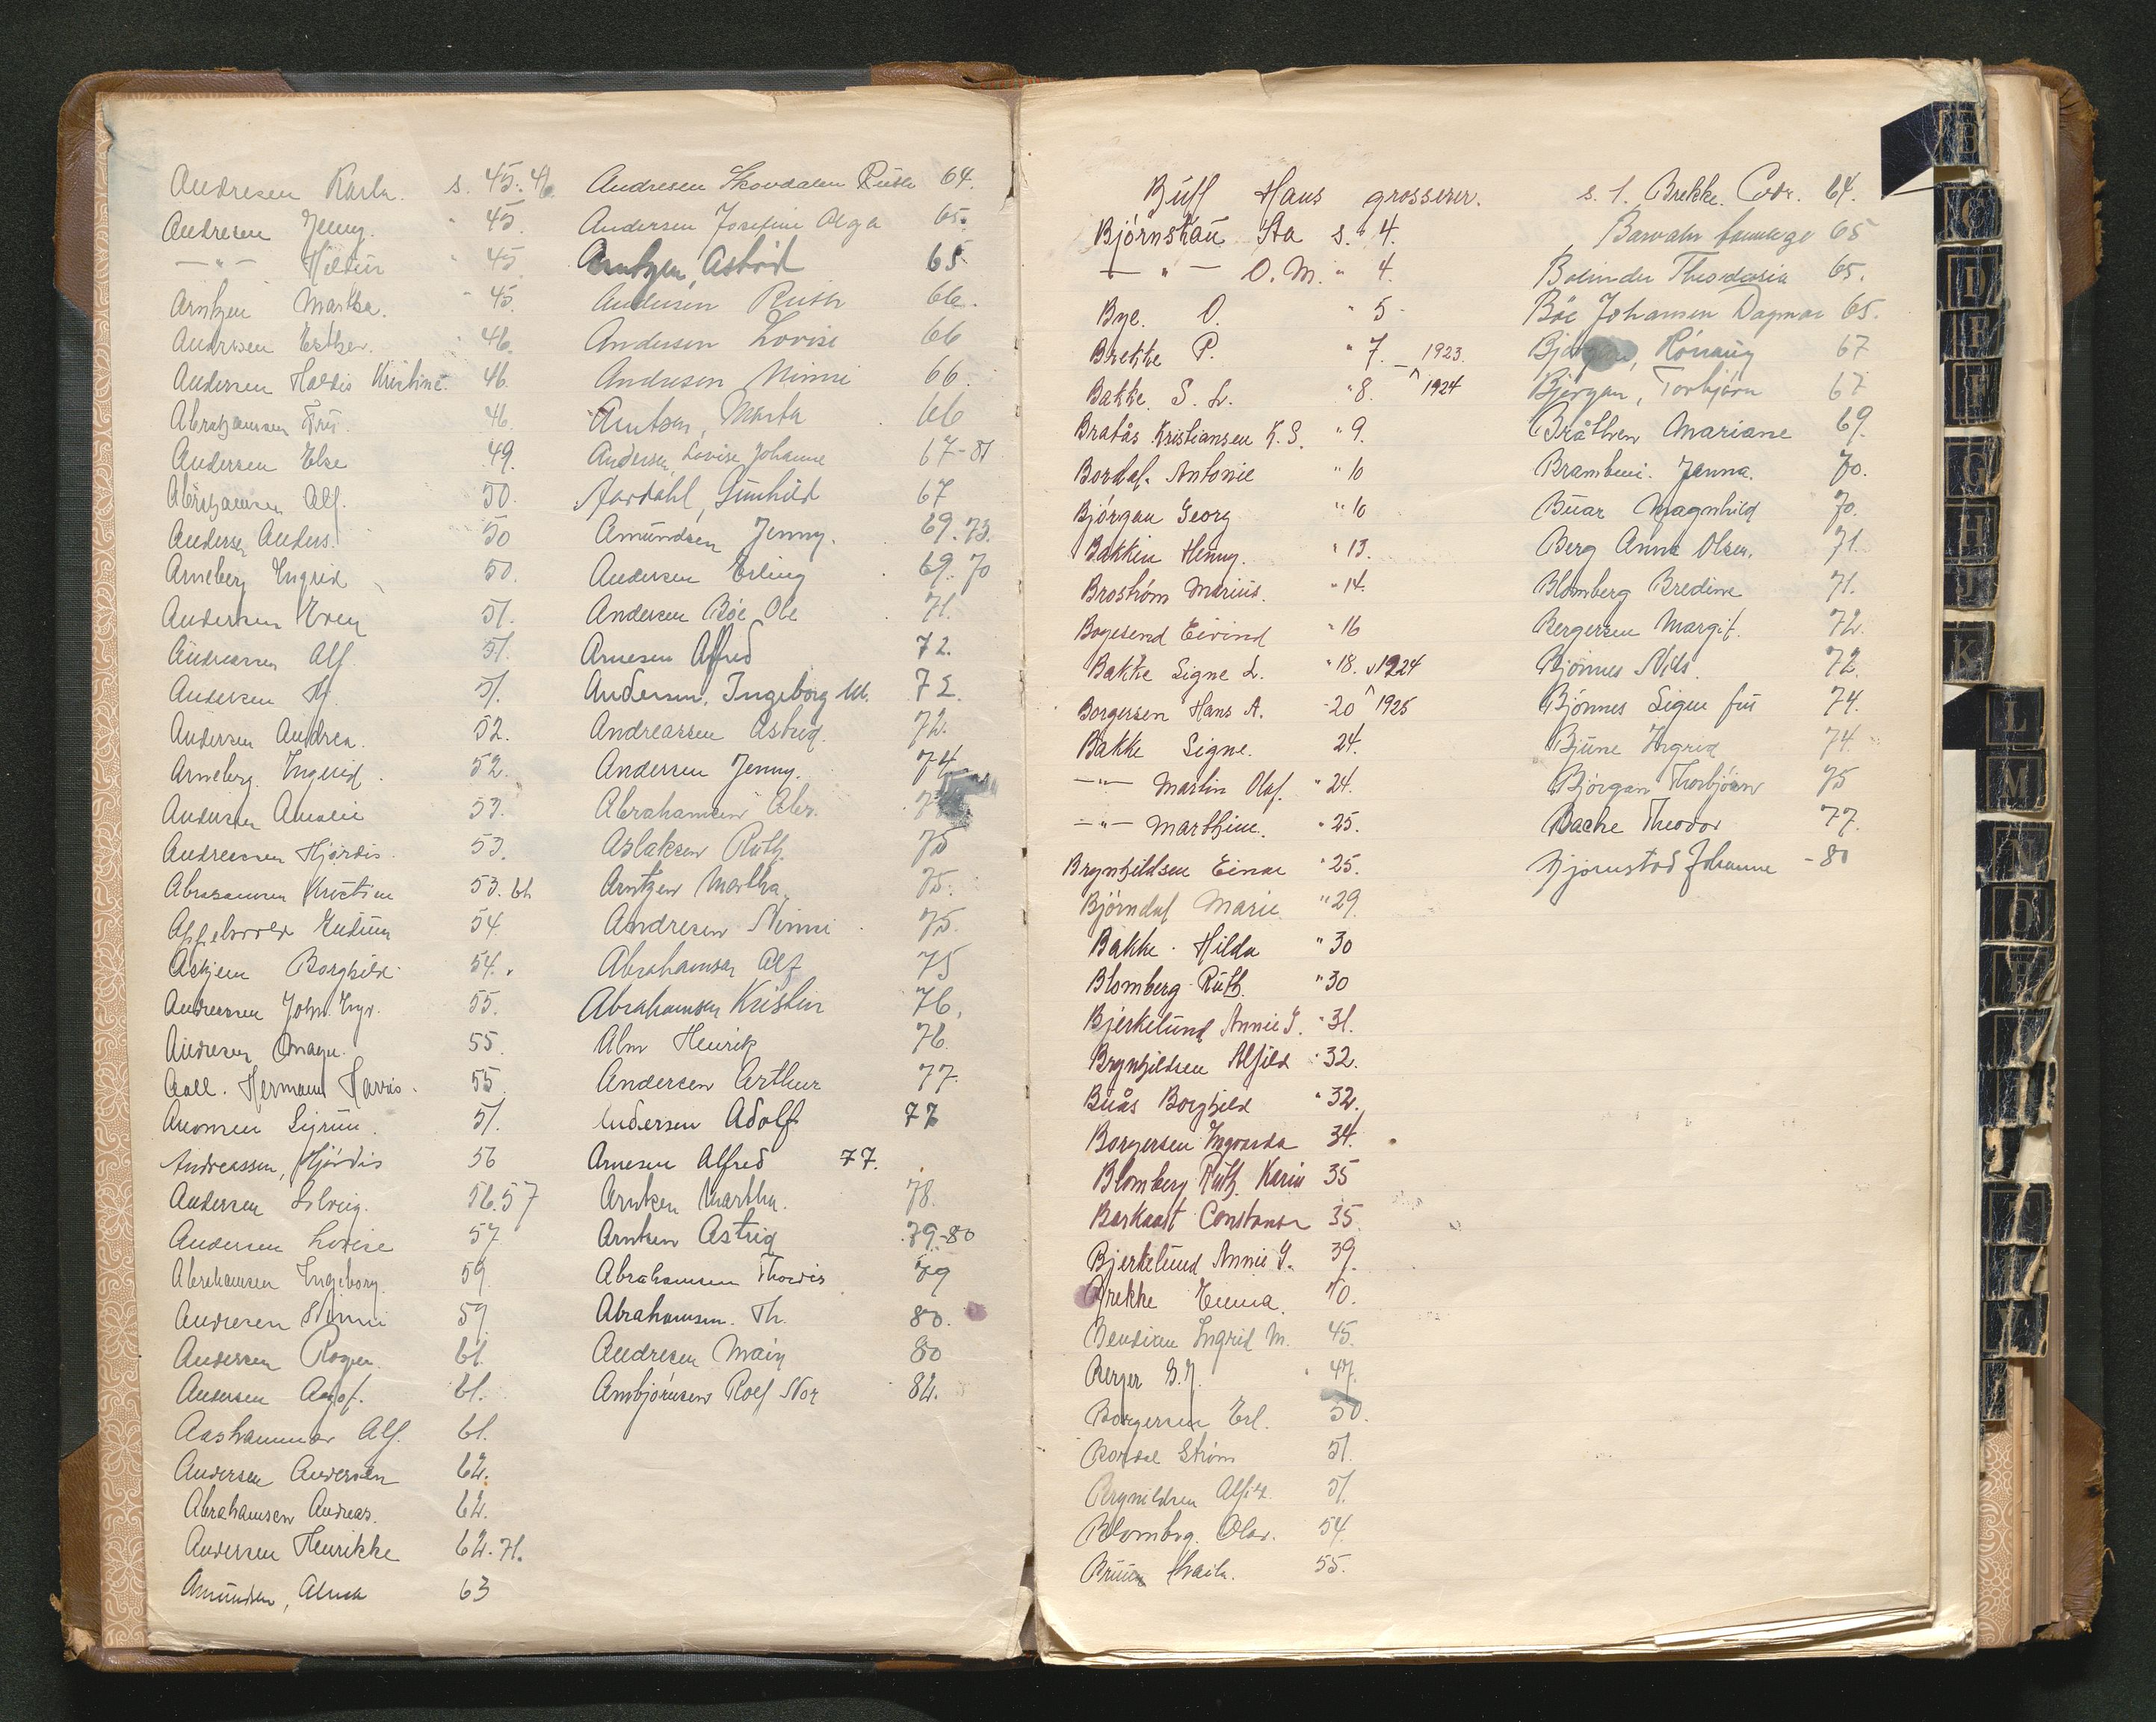 Andresen Karla. s. 45.46.
Andresen Jenny. " 45.
—"— Hildur " 45
Arntzen Martha. " 45.
Andresen Esther. 46.
Andersen Haldis Kristine. 46.
Abrahamsen Frú. 46.
Andersen Else 49.
Abrahamsen Alf. 50.
Andersen Anders. 50
Arneberg Ingrid 50.
Andersen Even 51.
Andreassen Alf. 51.
Andersen H. 51.
Andersen Andrea. 52.
Arneberg. Ingrid. 52.
Andersen Amalie 53.
Andreassen Hjørdis. 53.
Abrahamsen Kristine 53. 61.
54.
Askjem Borghild 54.
Andreassen John. 55.
Andresen 55.
Aall. Hermann Harris. 55.
Sigrun. 51.
Andreassen, Hjørdis 56
Andersen Solveig. 56.57
Andersen Lovise 57
Abrahamsen Ingeborg. 59.
Andresen Mimi 59
Andersen 61.
Andersen 61.
Aashammer Alf. 61.
Andersen Andersen 62.
Abrahamsen Andreas. 62.
Andersen Henrikke 62. 71.
Amundsen, 63
Andresen Skovdalen Ruth 64.
Andersen Josefine Olga 65.
Arntzen, Astrid 65
Andersen Ruth 66.
Andersen Lovise 66
Andresen Mimi 66.
Arntsen, Marta 66
Andersen, Lovise Johanne 67-81
Aardahl, Gunhild 67
Amundsen Jenny. 69. 73.
Andersen Erling 69. 70
Andersen Bøe Ole 71.
Arnesen Alfred 72.
Andersen, Ingeborg M. 72.
Andreassen Astrid. 72.
Andersen Jenny. 74
Abrahamsen Abr.
Aslaksen Ruth 75
Arntzen Martha. 75.
Andresen Mimi 75.
Abrahamsen Alf 75
Abrahamsen Kristin 76.
Alm Henrik 76.
Andersen Arthur 77.
Andersen Adolf 77
Arnesen Alfred 77.
Arntsen Martha. 78.
Arntsen Astrid 79-80
Abrahamsen Thordis 79
Abrahamsen. Th. 80.
Andresen 80
Arnbjørnsen Rolf 82.
Bull Hans grosserer. s. 1.
Bjørnstau Sta s. 4.
—"— O. M. " 4.
Bye. O. " 5.
Brekke P. " 7. 1923.
Bakke. S. L. " 8. 1924
Bratås Kristiansen K. S. " 9.
Bordal. Antonie " 10
Bjørgan Georg " 10
Bakken Henny. " 13.
Brostrøm Marius. " 14.
Bogesend Eivind " 16
Bakke Signe L. " 18. 1924
Borgersen Hans A. 20 1925
Bakke Signe. 24.
—"— Martin Olaf. " 24.
—"— Marthine. " 25.
Brynhildsen Einar " 25.
Bjørndal Marie " 29.
Bakke. Hilda " 30
Blomberg Ruth. " 30
Bjerkelund Annie G. " 31.
Brynhildsen Alfild " 32.
Buås Borghild " 32.
Borgersen Ingvarda 34.
Blomberg Ruth. Karin 35
Constanse 35.
Bjerkelund Annie G. 39.
Brekke Emma. 40.
Bendixen Ingrid M. 45.
Berger 47.
Borgersen Erl. 50.
Bordal Strøm 51.
Brynildsen Alfild 51.
Blomberg. Olav. 54.
Bruun 55.
Brekke. 64.
65
Bolinder Theodosia 65.
Bøe Johansen Dagmar 65.
67
Bjørgan, Torbjørn 67
Bråthen Mariane 69.
Jenna. 70.
Buar Magnhild 70.
Berg Anna Olsen. 71.
Blomberg Bredine 71.
Bergersen Margit. 72.
Bjønnes Nils. 72.
Bjønnes Signe frú 74.
Bjune Ingrid 74.
Bjørgan Thorbjørn 75
Bache Theodor 77.
Bjørnstad Johanne - 80
B
C
D
E
F
G
H
J
K
L
M
N
O
P